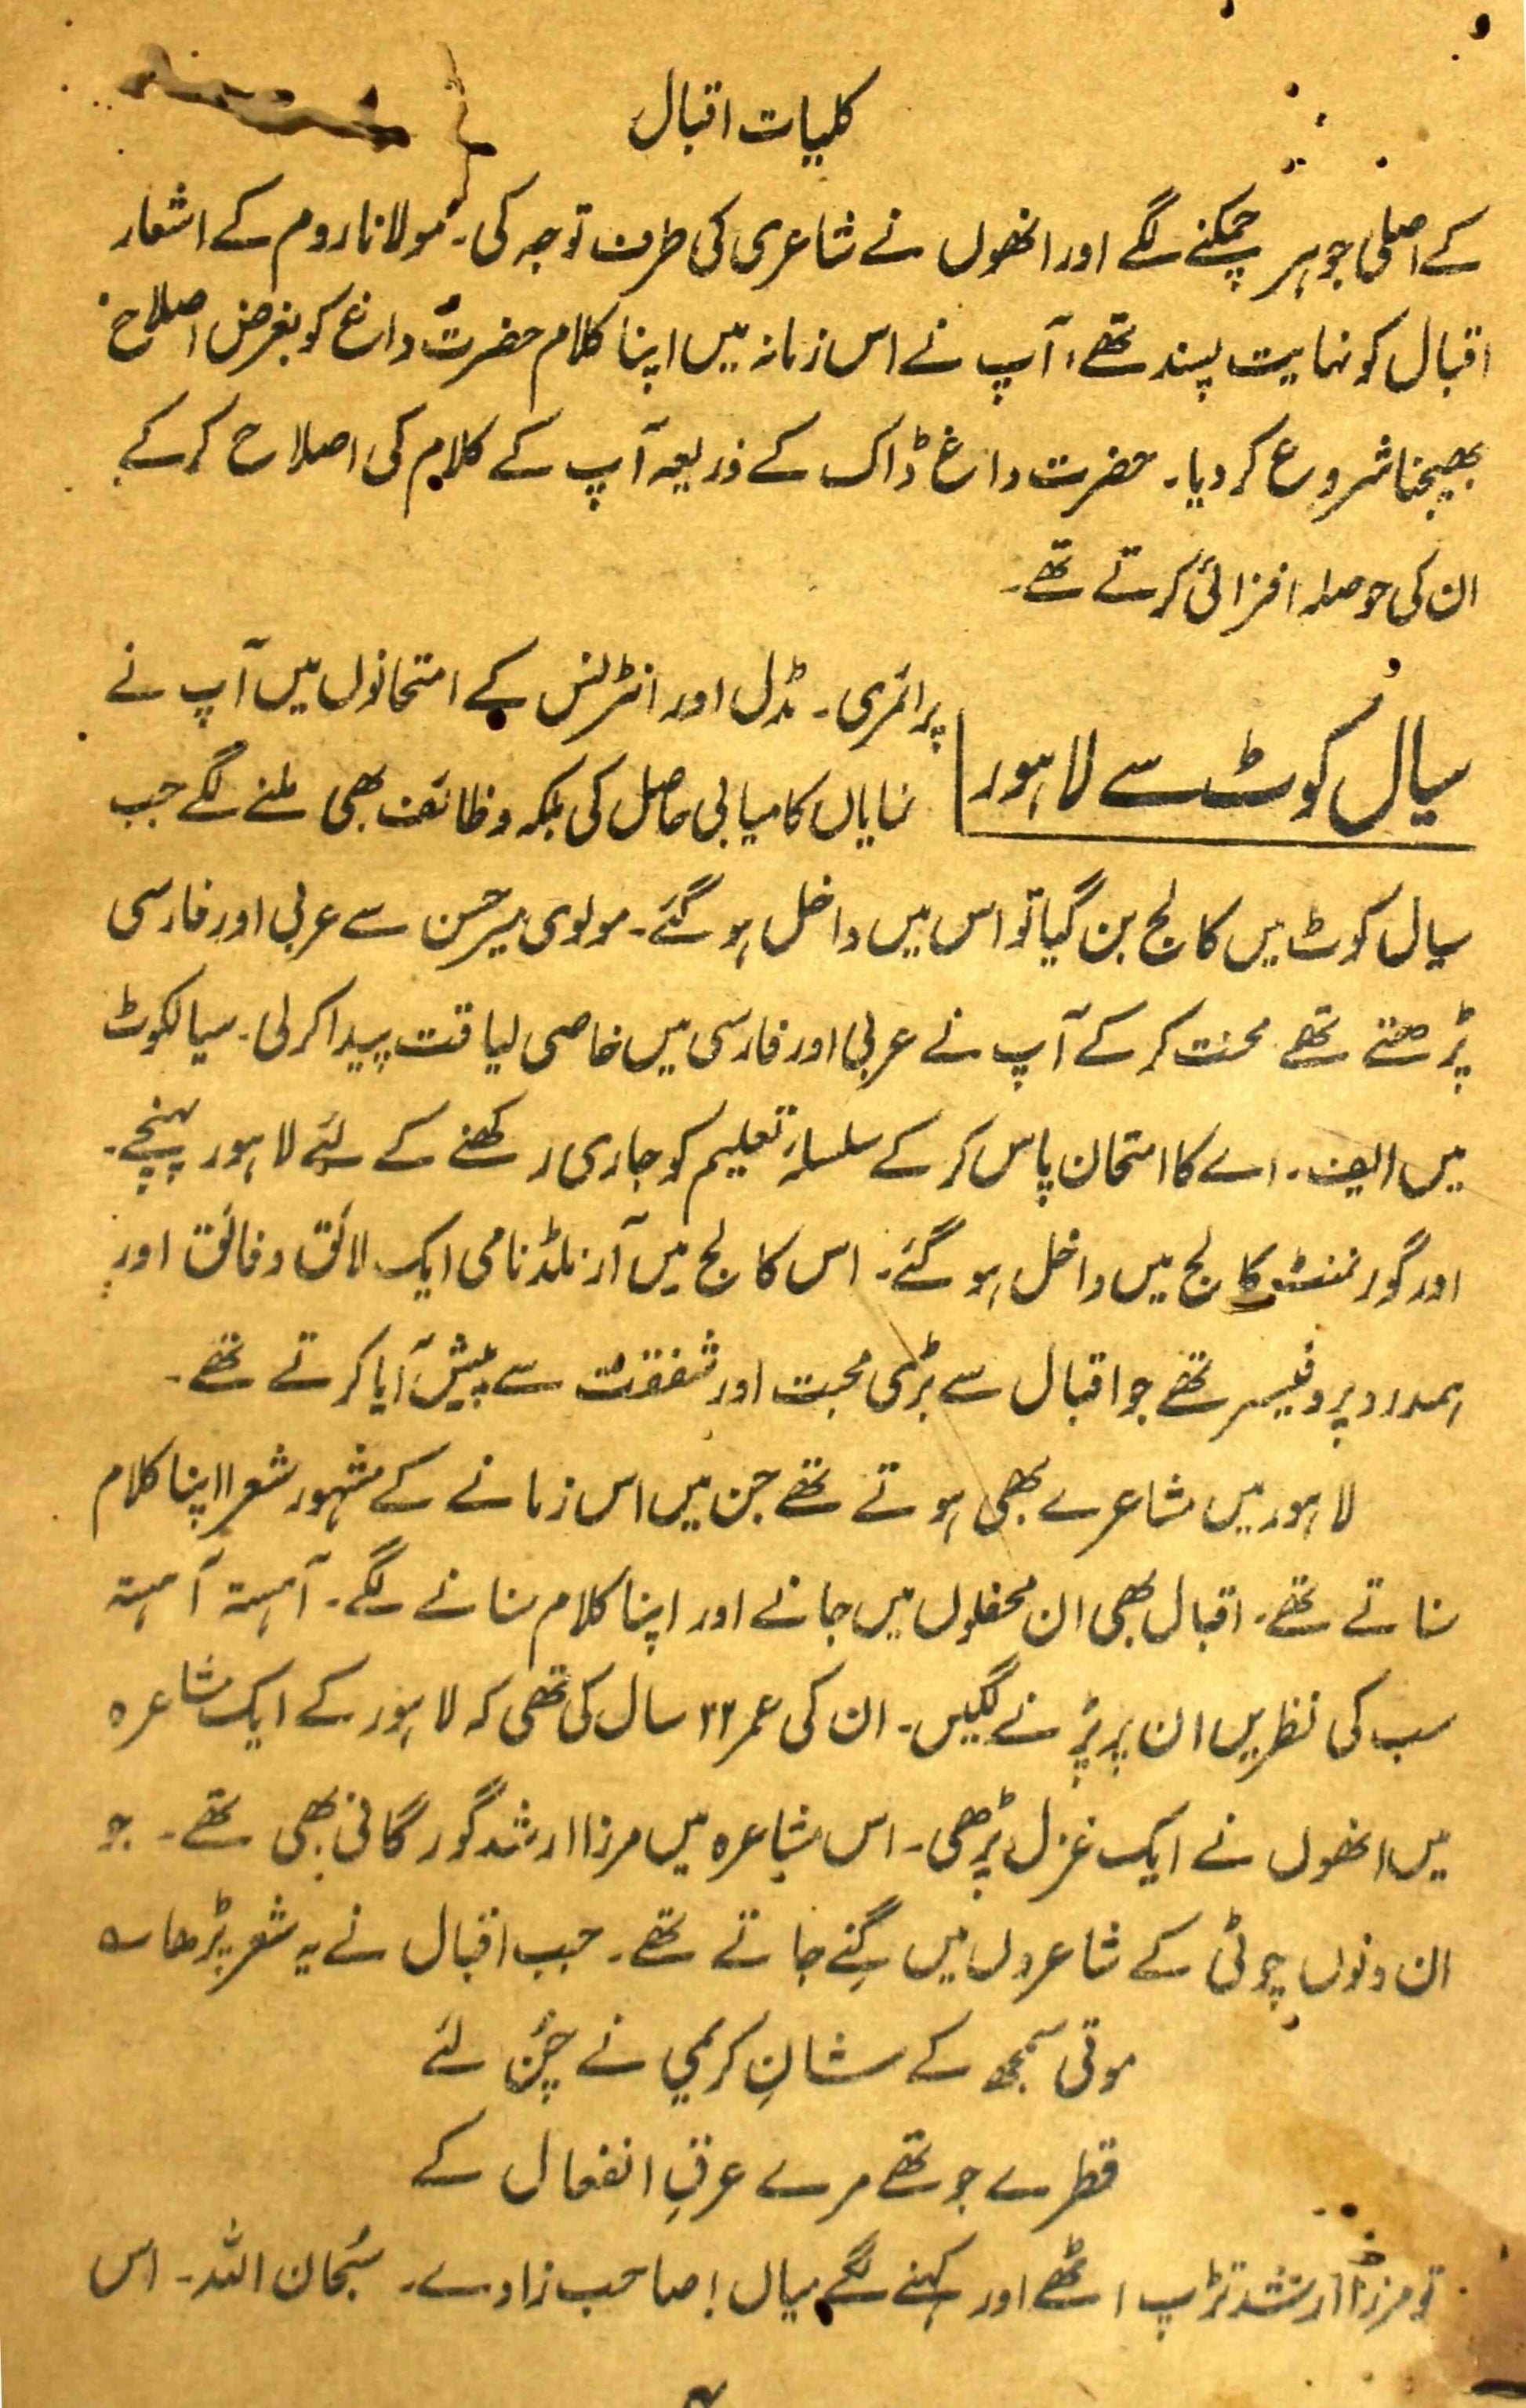 کلیات اقبال
کے اصلی جوہر چمکنے لگے اور انھوں نے شاعری کی طرف توجہ کی۔ مولانا روم کے اشعار
اقبال کو نہایت پسند تھے، آپ نے اس زمانہ میں اپنا کلام حضرت داغ کو بغرض اصلاح
بھیجنا شروع کر دیا۔ حضرت داغ ڈاک کے ذریعہ آپ کے کلام کی اصلاح کر کے
ان کی حوصلہ افزائی کرتے تھے۔
سیال کوٹ سے لاہور
پرائمری۔ مڈل اور انٹرنس کے امتحانوں میں آپ نے
نمایاں کامیابی حاصل کی بلکہ وظائف بھی ملنے لگے جب
سیال کوٹ میں کالج بن گیا تو اس میں داخل ہو گئے۔ مولوی میر حسن سے عربی اور فارسی
پڑھتے تھے محنت کر کے آپ نے عربی اور فارسی میں خاصی لیاقت پیدا کر لی۔ سیالکوٹ
میں ایف۔ اے کا امتحان پاس کر کے سلسلۂ تعلیم کو جاری رکھنے کے لئے لاہور پہنچے۔
اور گورنمنٹ کالج میں داخل ہو گئے۔ اس کالج میں آرنلڈ نامی ایک لائق و فائق اور
ہمدرد پروفیسر تھے جو اقبال سے بڑی محبت اور شفقت سے پیش آیا کرتے تھے۔
لاہور میں مشاعرے بھی ہوتے تھے جن میں اس زمانے کے مشہور شعرا اپنا کلام
سناتے تھے۔ اقبال بھی ان محفلوں میں جانے اور اپنا کلام سنانے لگے۔ آہستہ آہستہ
سب کی نظریں ان پر پڑنے لگیں۔ ان کی عمر ۲۲ سال کی تھی کہ لاہور کے ایک مشاعرہ
میں انھوں نے ایک غزل پڑھی۔ اس مشاعرہ میں مرزا ارشد گورگانی بھی تھے۔ جو
ان دنوں چوٹی کے شاعروں میں گنے جاتے تھے۔ جب اقبال نے یہ شعر پڑھا ؎
موتی سمجھ کے شانِ کریمی نے چُن لئے
قطرے جو تھے مرے عرقِ انفعال کے
تو مرزا ارشد تڑپ اٹھے اور کہنے لگے میاں! صاحب زادے۔ سُبحان اللہ۔ اس